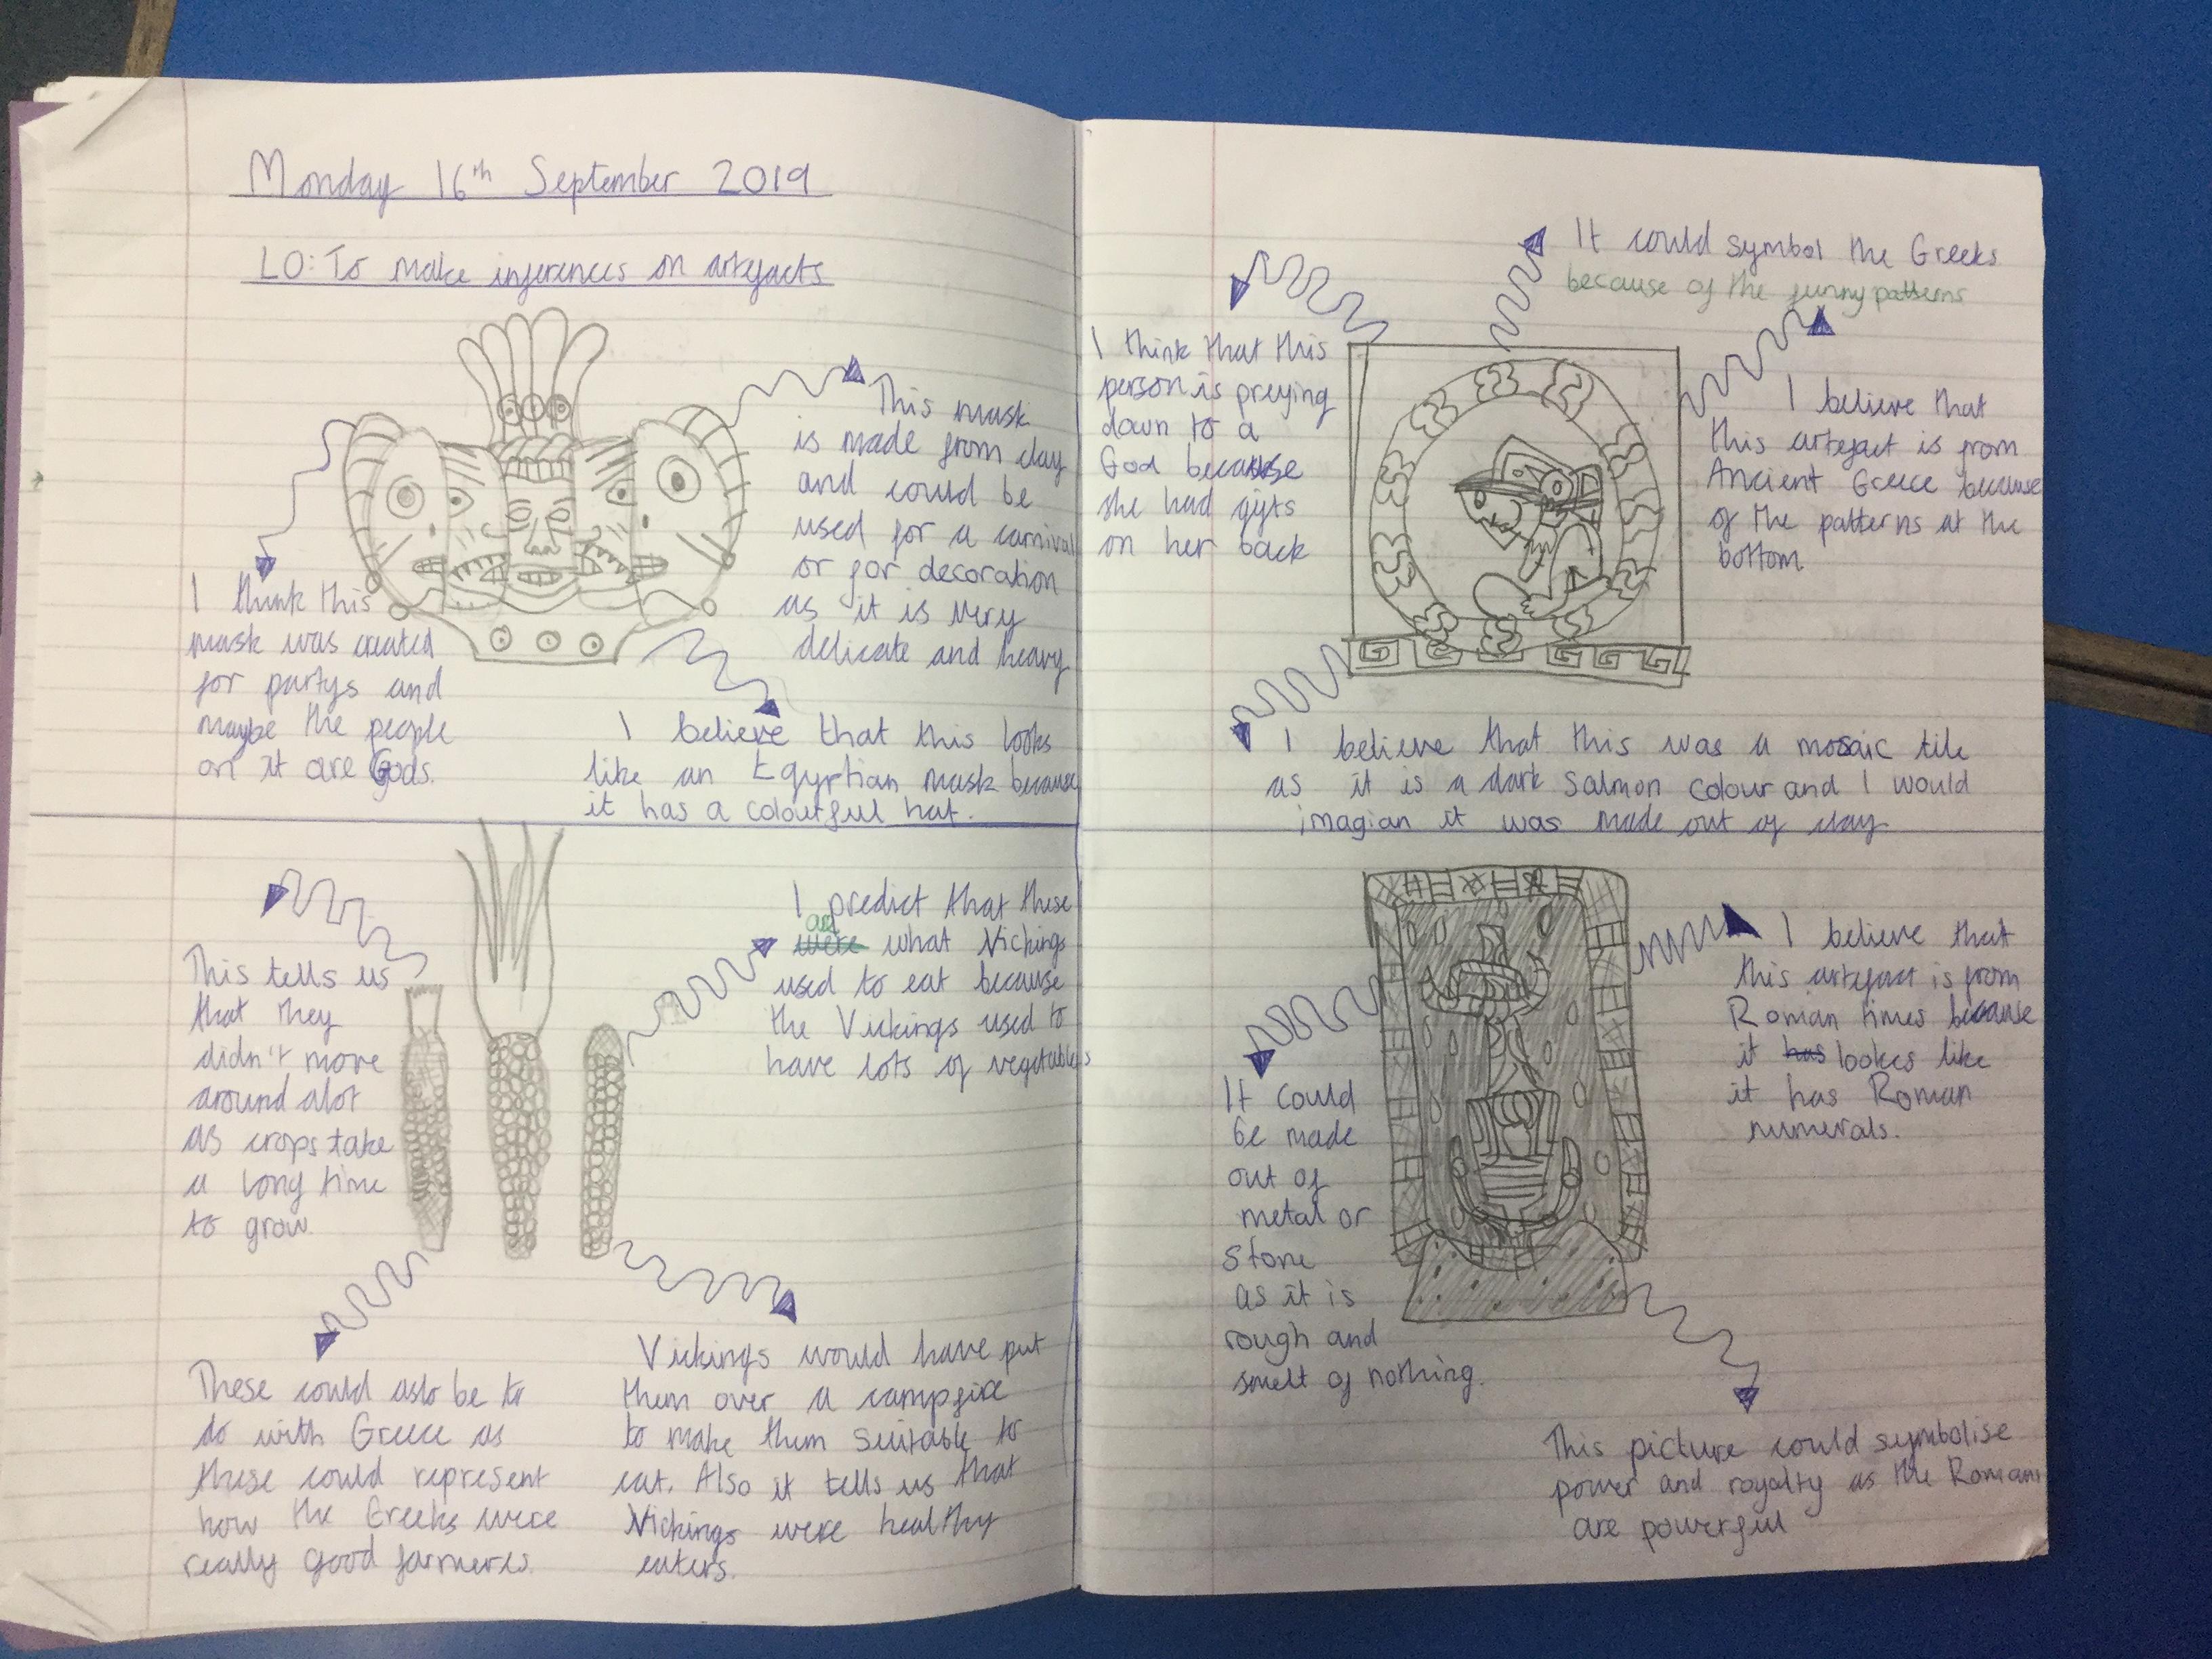 Monday 16th September 2019
LO: To make inferences on artefacts
This mask
is made from clay
and could be
used for a carnival
or for decoration
as it is very
delicate and heavy
I think this
mask was created
for partys and
maybe the people
on it are Gods.
I believe that this looks
like an Egyptian mask because
it has a colourful hat.
This tells us
that they
didn't move
around alot
as crops take
a long time
to grow.
I predict that these
are
were what Vickings
used to eat because
the Vickings used to
have lots of vegetables
These could aslo be to
do with Greece as
these could represent
how the Greeks were
really good farmeres.
Vickings would have put
them over a campfire
to make them suitable to
eat. Also it tells us that
Vickings were healthy
eaters.
It could symbol the Greeks
because of the funny patterns
I think that this
person is preying
down to a
God because
she had gifts
on her back
I believe that
this artefact is from
Ancient Greece because
of the patterns at the
bottom.
I believe that this was a mosaic tile
as it is a dark salmon colour and I would
imagian it was made out of clay
I believe that
this artefact is from
Roman times because
it has lookes like
it has Roman
numerals.
It could
be made
out of
metal or
stone
as it is
rough and
smelt of nothing.
This picture could symbolise
power and royalty as the Romans
are powerful